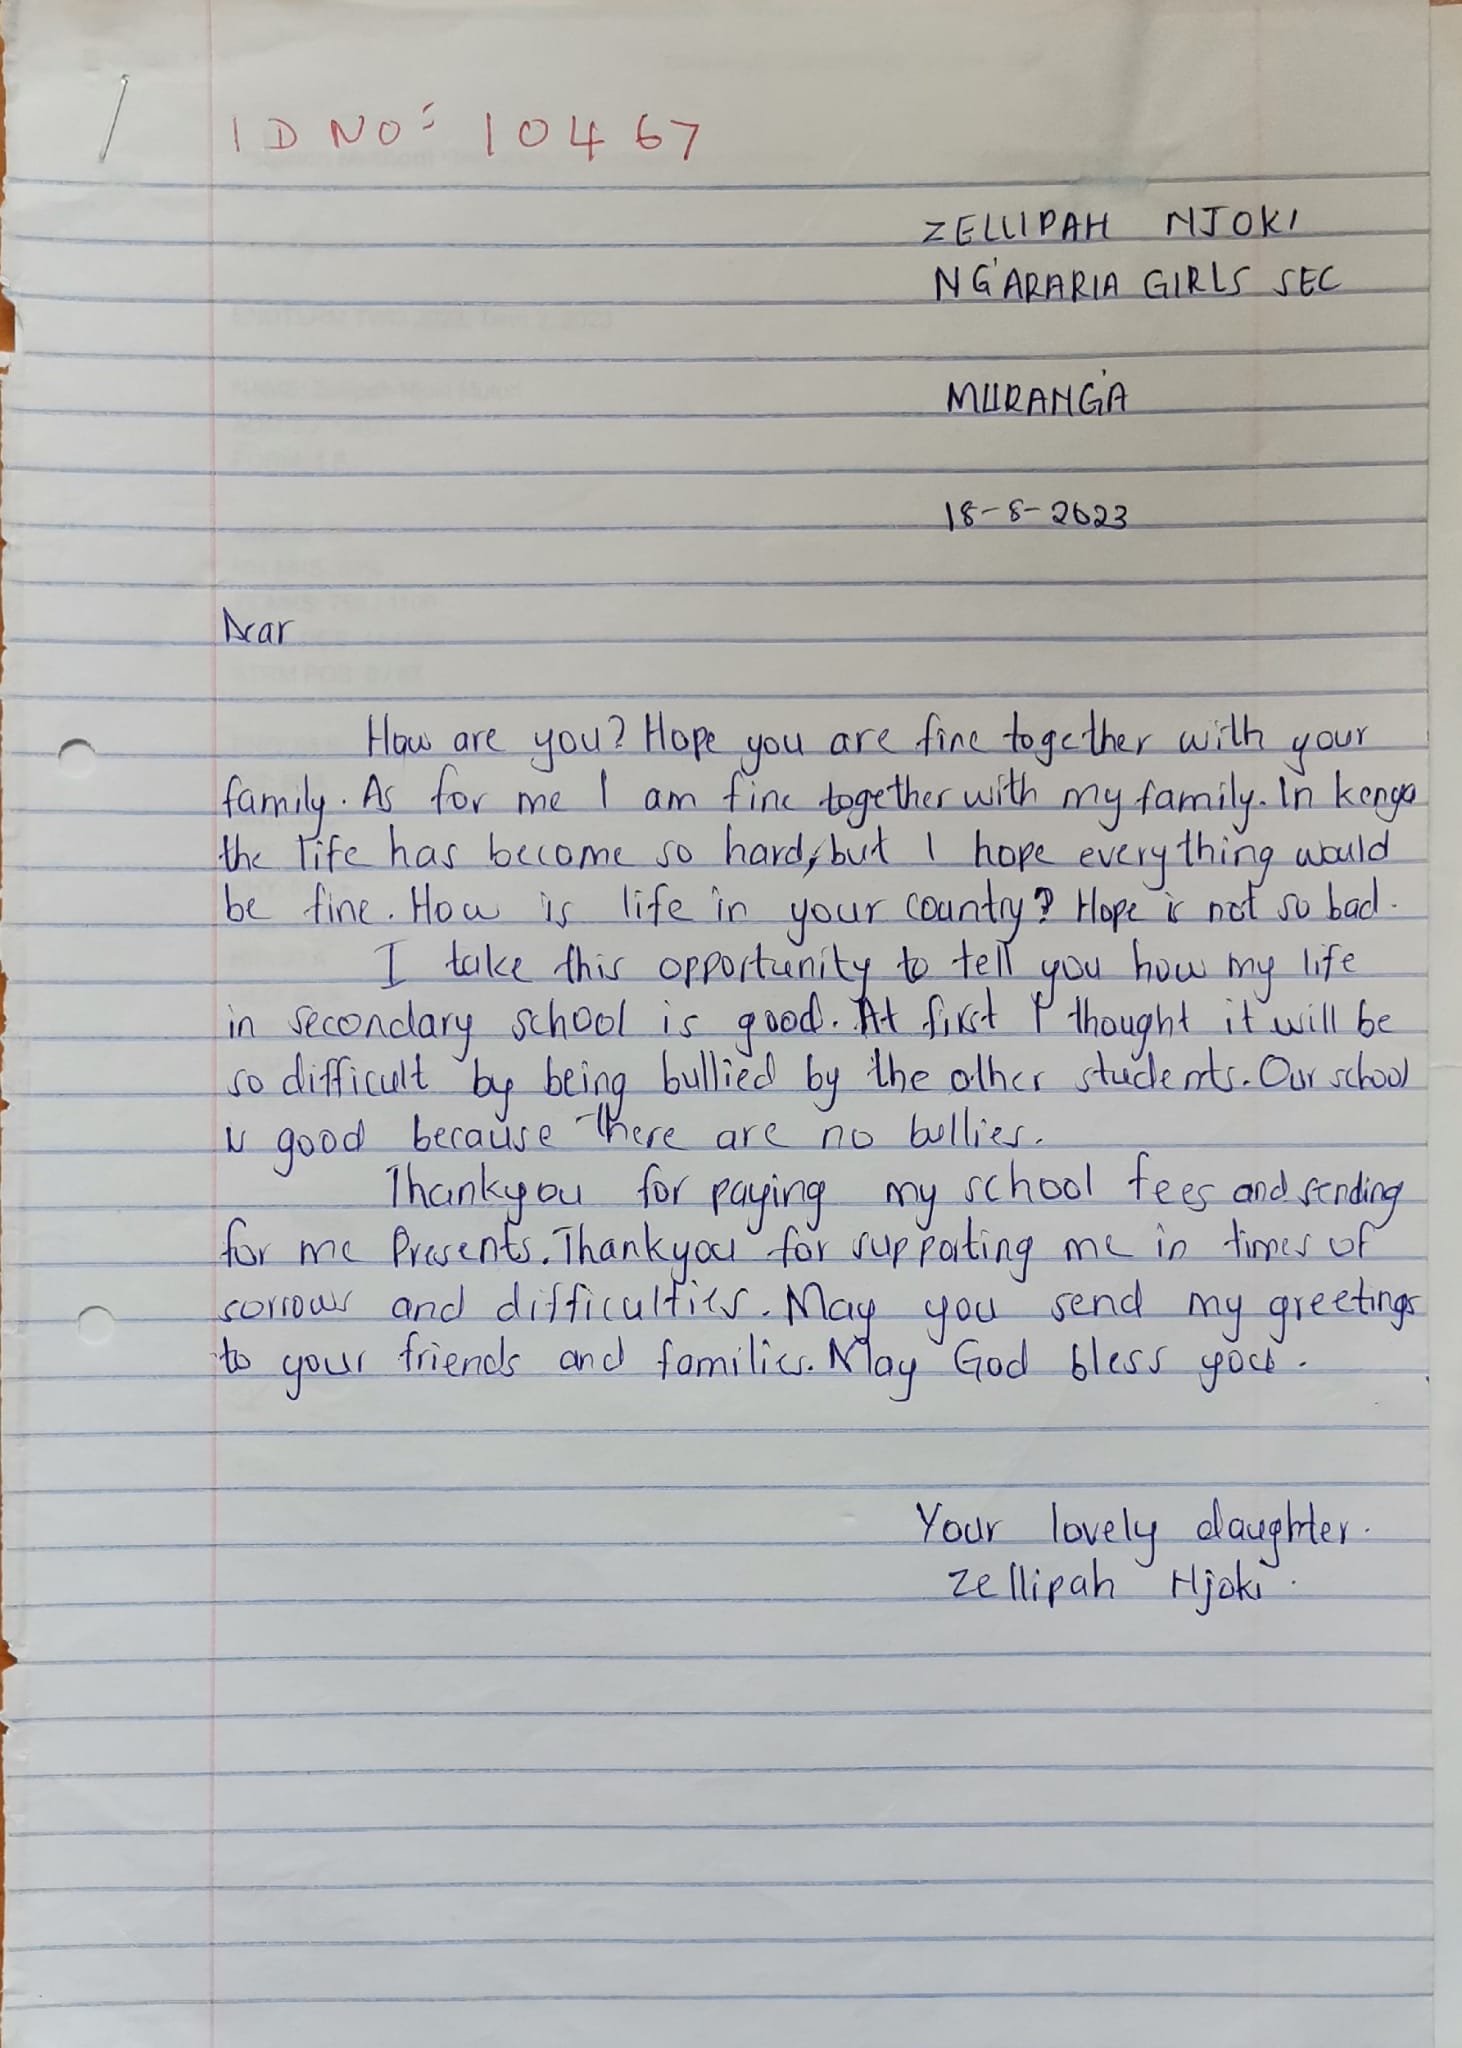 ID NO: 10467
ZELLIPAH NJOKI
NG'ARARIA GIRLS SEC
MURANG'A
18-8-2023
Dear
How are you? Hope you are fine together with your
family. As for me I am fine together with my family. In kenya
the life has become so hard, but I hope everything would
be fine. How is life in your country? Hope is not so bad.
I take this opportunity to tell you how my life
in secondary school is good. At first I thought it will be
so difficult by being bullied by the other students. Our school
is good because there are no bullies.
Thankyou for paying my school fees and sending
for me Presents. Thankyou for supporting me in times of
sorrows and difficulties. May you send my greetings
to your friends and families. May God bless you.
Your lovely daughter.
Zellipah Njoki.